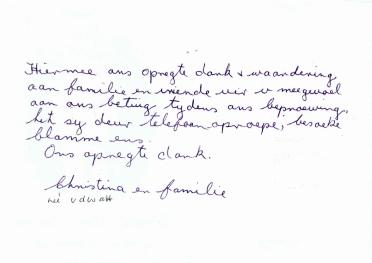 Hiermee ons opregte dank & waardering
aan familie en vriende vir u meegevoel
aan ons betuig tydens ons beproewing,
het sy deur telefoon oproepe, besoeke
blomme ens.
Ons opregte dank.
Christina en familie
née vdwatt